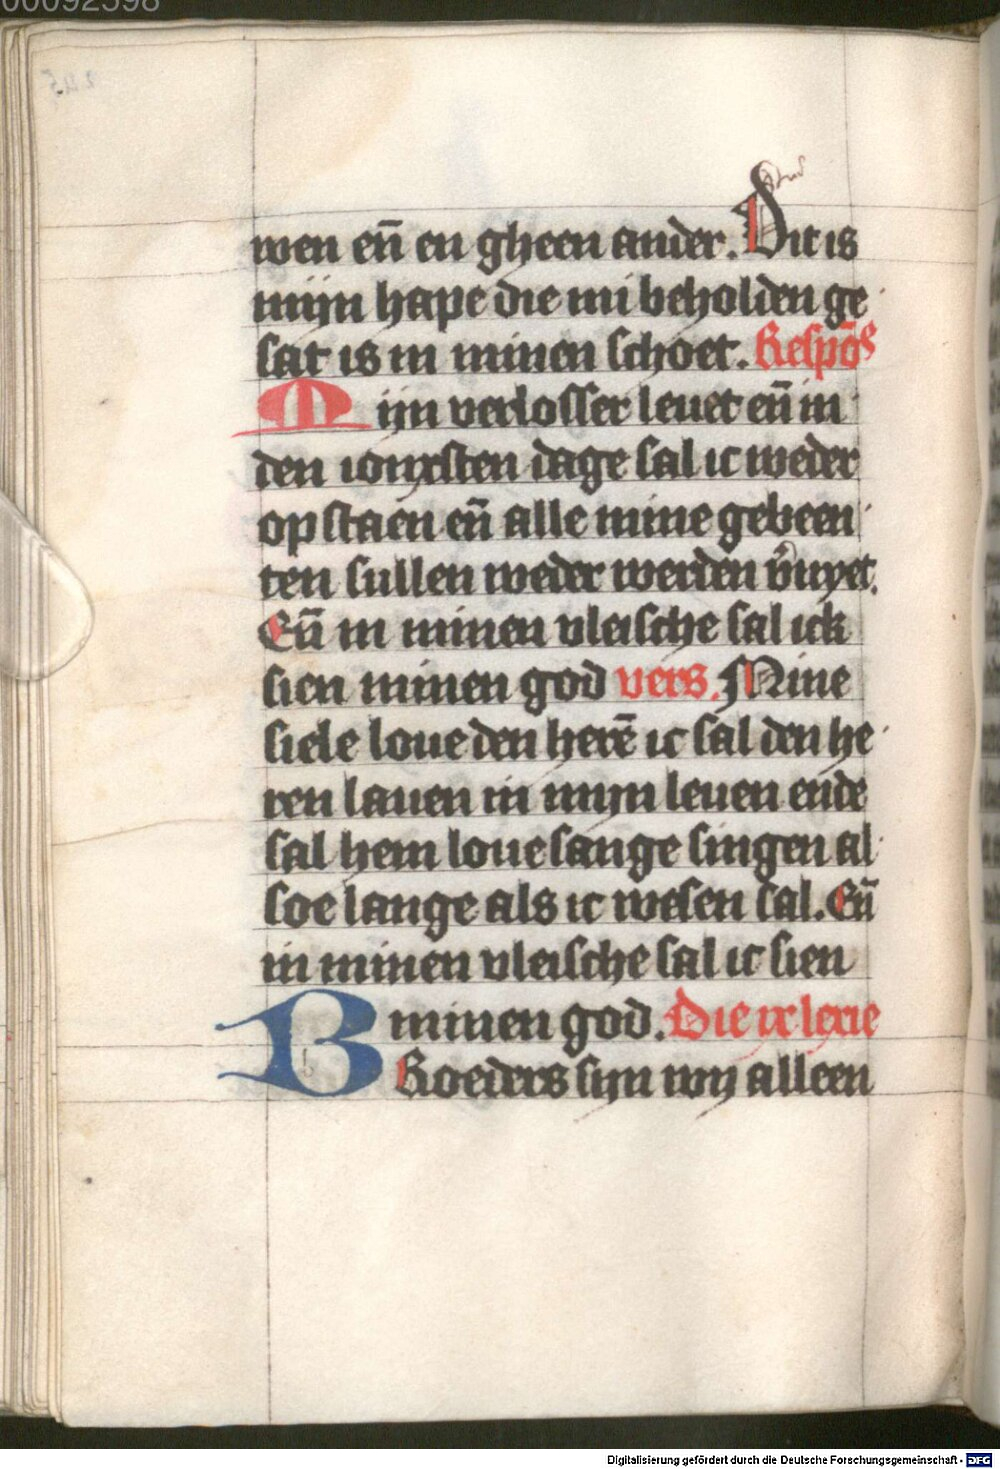 00092598
wen eñ en gheen ander. Dit is
mijn hape die mi beholden ge
sat is in minen schoet. Respōs
Mijn verlosser leuet eñ in
den ionxsten dage sal ic weder
op staen eñ alle mine gebeen
ten sullen weder werden v̄nyet.
Eñ in minen vleische sal ick
sien minen god vers. Mine
siele loue den herē ic sal den he
ren lauen in mijn leuen ende
sal hem loue sange singen al
soe lange als ic wesen sal. Eñ
in minen vleische sal ic sien
minen god. Die ix lexie
BRoeders sijn wy alleen
Digitalisierung gefördert durch die Deutsche Forschungsgemeinschaft - DFG